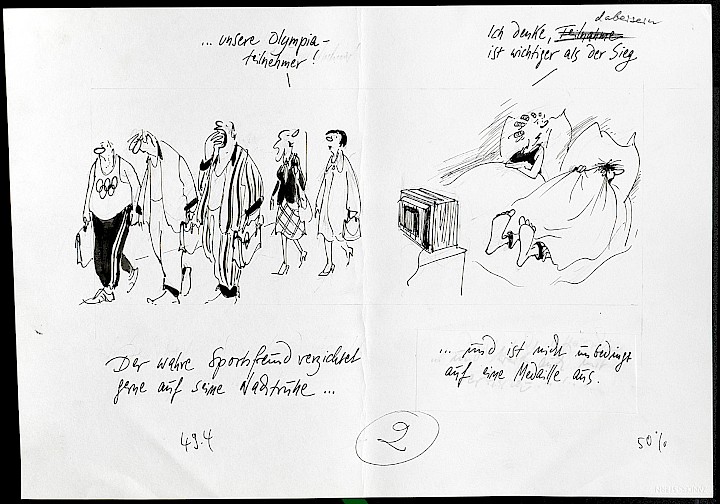 ... unsere Olympia-
teilnehmer!
dabeisein
Ich denke, Teilnahme
ist wichtiger als der Sieg
Der wahre Sportsfreund verzichtet
gerne auf seine Nachtruhe ...
... und ist nicht unbedingt
auf eine Medaille aus.
49.4
2
50%